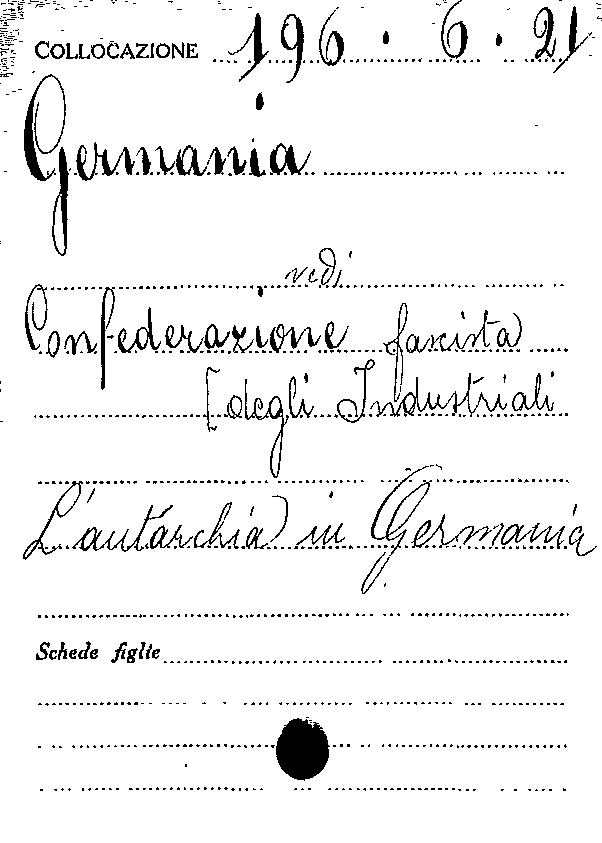 COLLOCAZIONE 196 . 6 . 21
Germania
vedi
Confederazione fascista
[degli Industriali
L'autarchia in Germania
Schede figlie